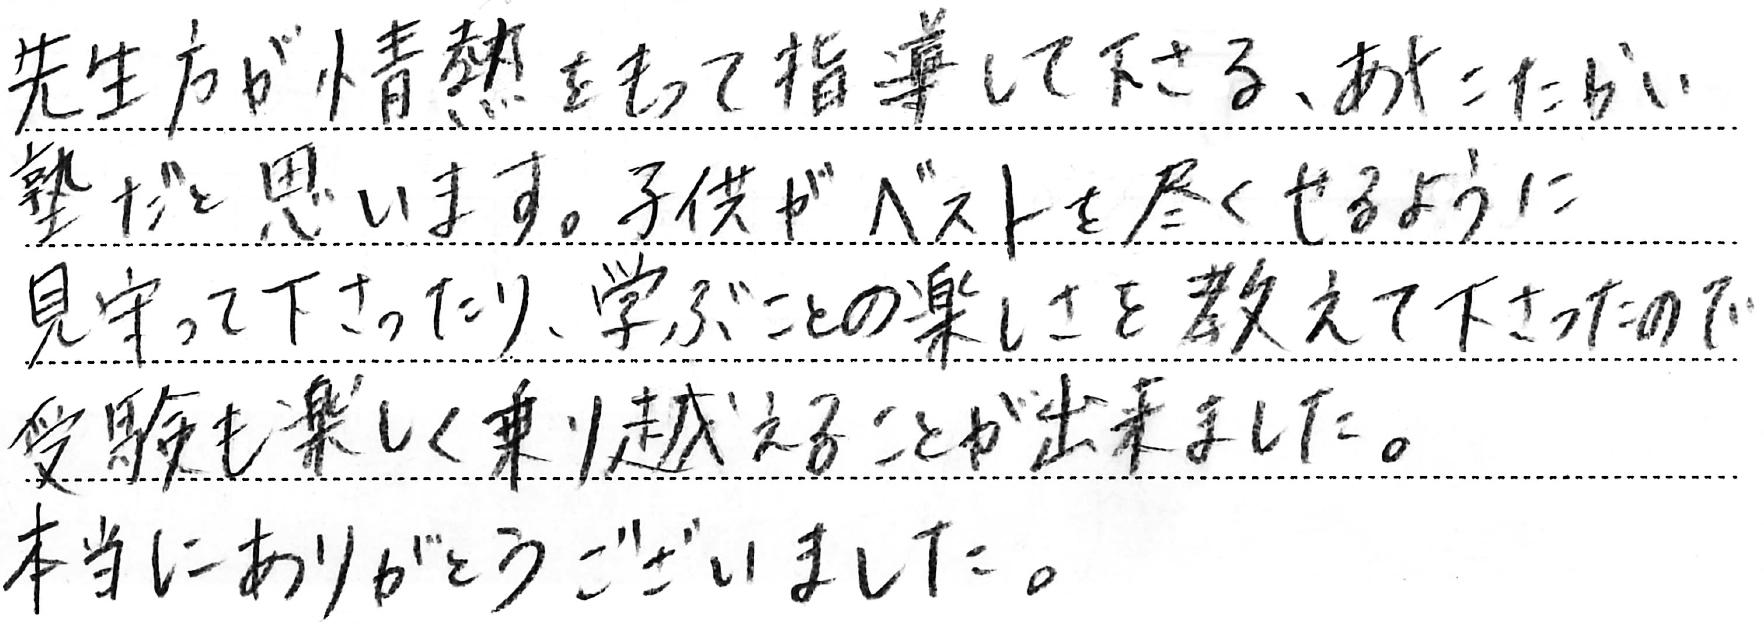 先生方が情熱をもって指導して下さる、あたたかい
塾だと思います。子供がベストを尽くせるように
見守って下さったり、学ぶことの楽しさを教えて下さったので
受験も楽しく乗り越えることが出来ました。
本当にありがとうございました。